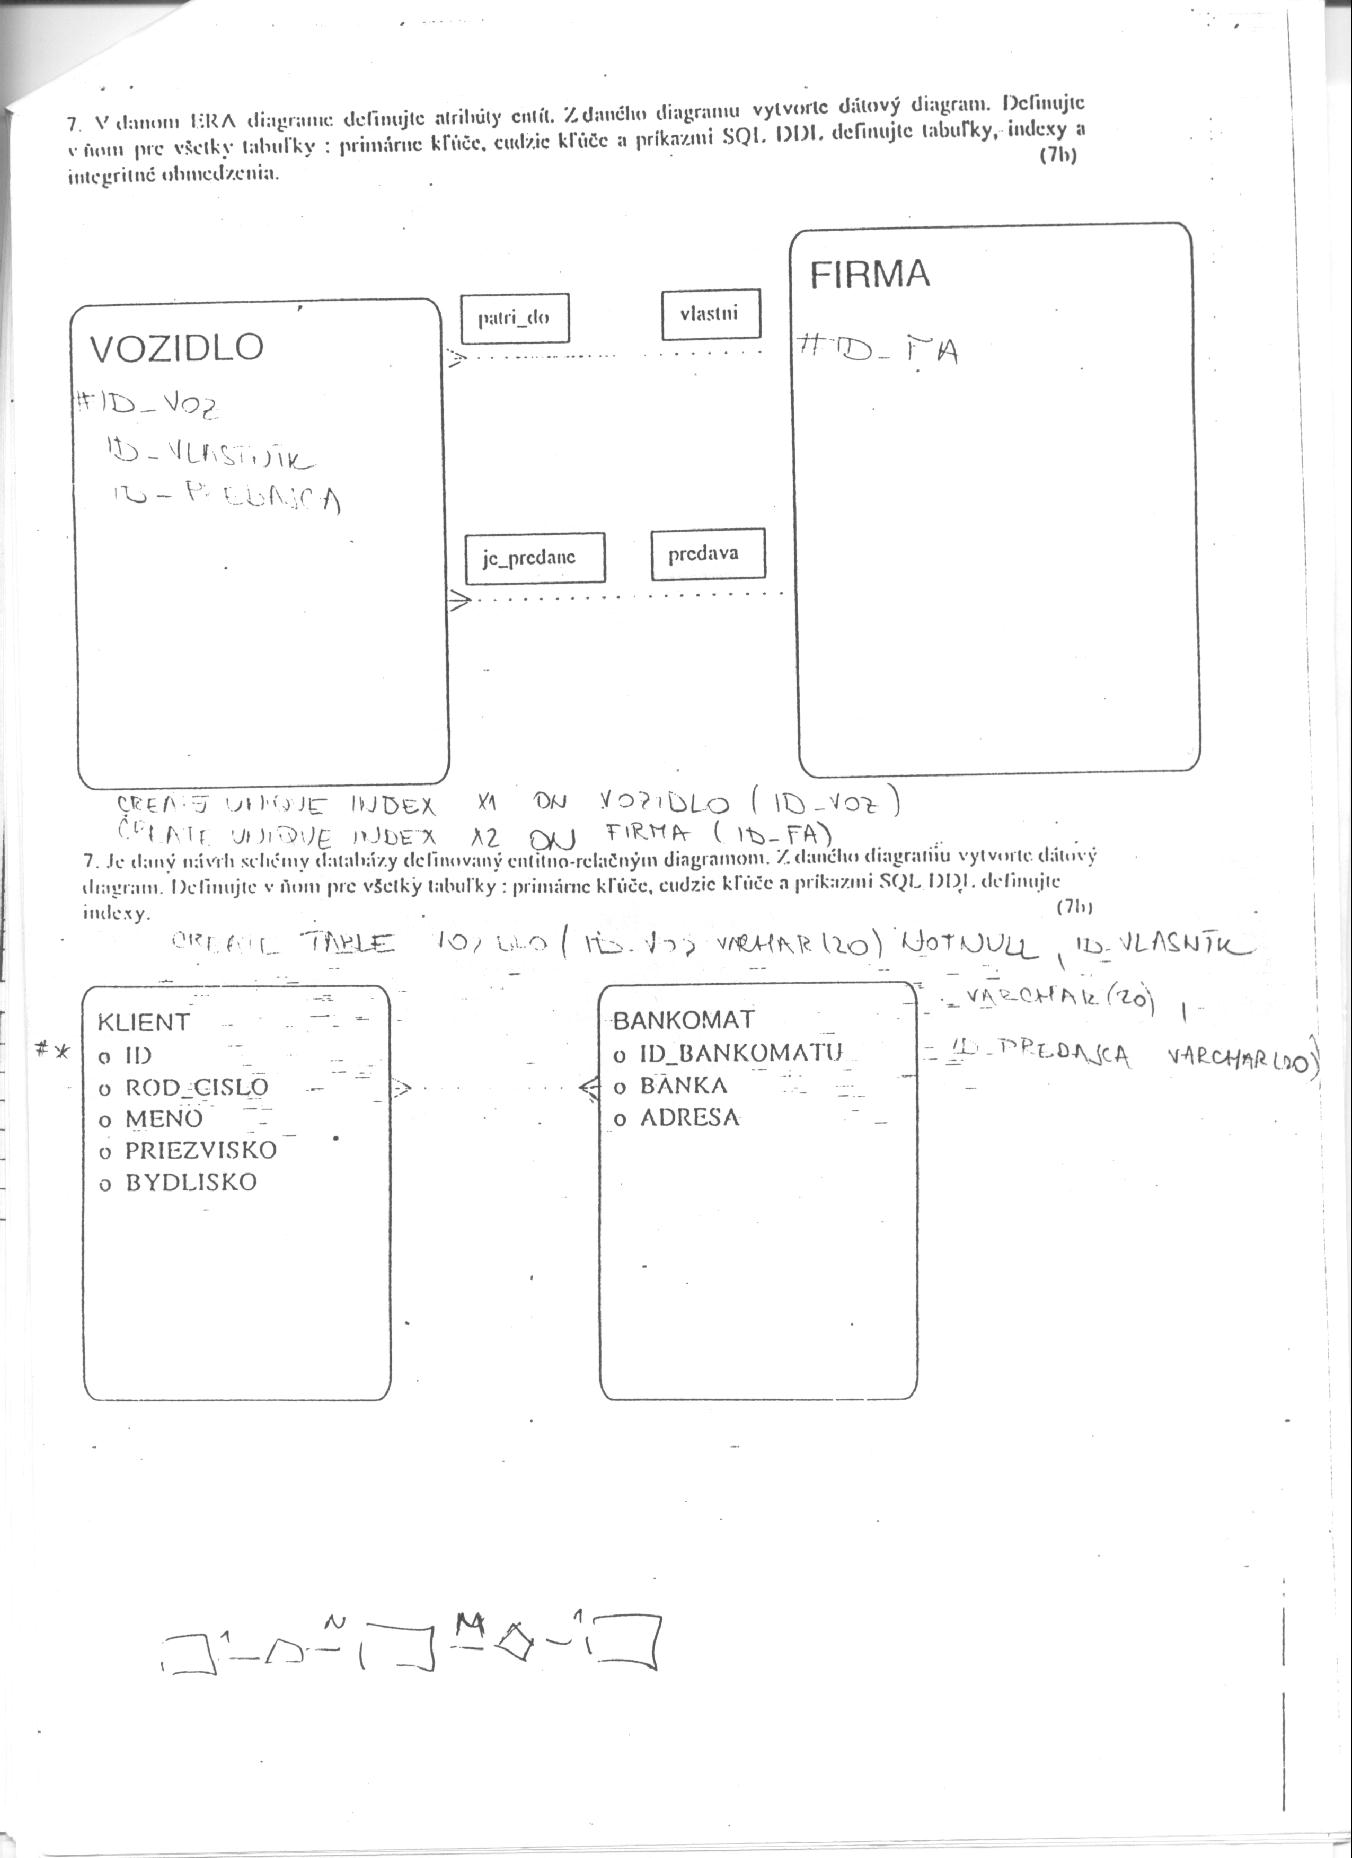 7. V danom ERA diagrame definujte atribúty entít. Z daného diagramu vytvorte dátový diagram. Definujte
v ňom pre všetky tabuľky : primárne kľúče, cudzie kľúče a príkazmi SQL DDL definujte tabuľky, indexy a
integritné obmedzenia. (7b)
FIRMA
patri_do vlastni
VOZIDLO
#ID_FA
#ID_VOZ
ID_VLASTNIK
ID_PREDAJCA
je_predane predava
CREATE UNIQUE INDEX X1 ON VOZIDLO (ID_VOZ)
CREATE UNIQUE INDEX X2 ON FIRMA (ID_FA)
7. Je daný návrh schémy databázy definovaný entitno-relačným diagramom. Z daného diagramu vytvorte dátový
diagram. Definujte v ňom pre všetky tabuľky : primárne kľúče, cudzie kľúče a príkazmi SQL DDL definujte
indexy. (7b)
CREATE TABLE VOZIDLO (ID_VOZ VARCHAR(20) NOT NULL, ID_VLASNÍK
VARCHAR(20),
ID_PREDAJCA VARCHAR(20)
KLIENT
#* o ID
o ROD_CISLO
o MENO
o PRIEZVISKO
o BYDLISKO
BANKOMAT
o ID_BANKOMATU
o BANKA
o ADRESA
1 N M 1